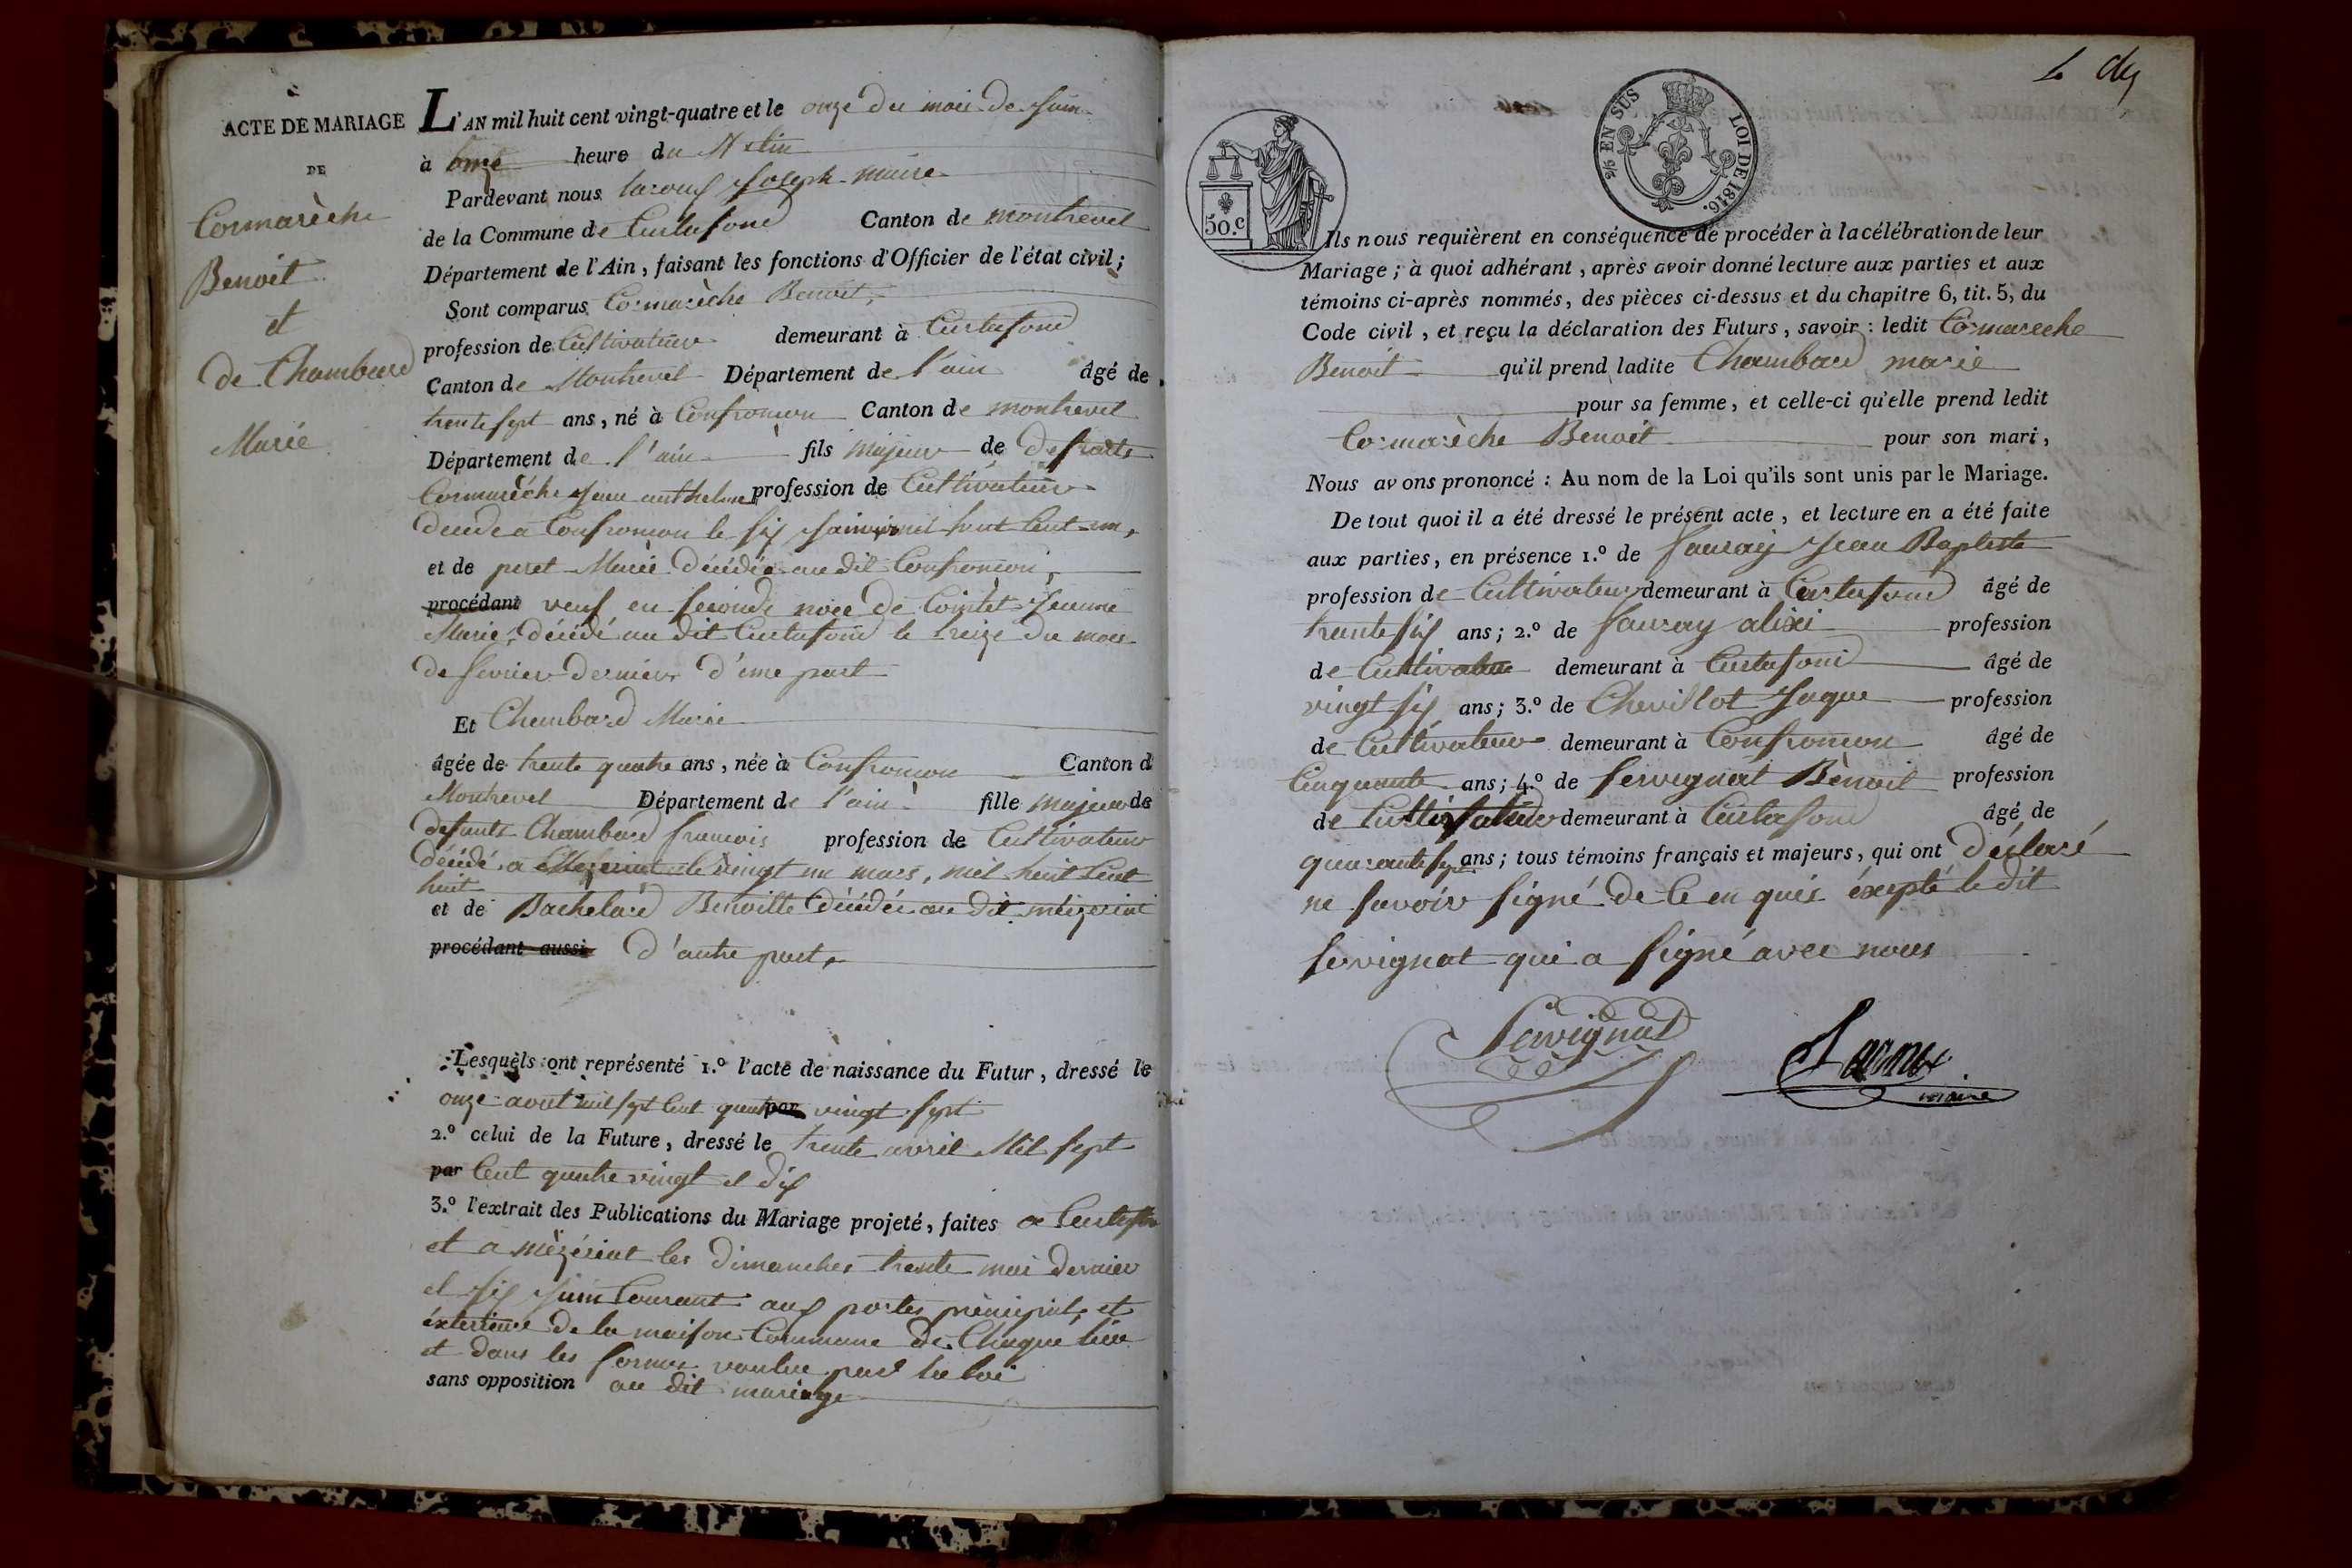 ACTE DE MARIAGE
DE
Cormarèche
Benoit
et
de Chambard
Marie
L'AN mil huit cent vingt-quatre et le onze du mois de Juin
à onze heure du Matin
Pardevant nous Joseph maire
de la Commune de Curtafond Canton de montrevel
Département de l'Ain, faisant les fonctions d'Officier de l'état civil;
Sont comparus Cormarèche Benoit,
profession de Cultivateur demeurant à Curtafond
Canton de Montrevel Département de l'ain âgé de
trente sept ans, né à Confrançon Canton de montrevel
Département de l'ain fils majeur de defunts
Cormarèche Jean anthelme profession de Cultivateur
décédé a Confrançon le six mil huit Cent un,
et de peret Marie décédée au dit Confrançon,
procédant veuf en seconde noce de Cointet Jeanne
Marie, décédé au dit Curtafond le treize du mois
de fevrier dernier d'une part
Et Chambard Marie
âgée de trente quatre ans, née à Confrançon Canton d
Montrevel Département de l'ain fille majeur de
defunts Chambard francois profession de Cultivateur
décédé a Mezeriat le vingt un mars, mil huit Cent
huit
et de Bachelard Benoitte décédée au dit mézeriat
procédant aussi d'autre part,
Lesquels ont représenté 1.º l'acte de naissance du Futur, dressé le
onze aout mil sept Cent quatre par vingt sept
2.º celui de la Future, dressé le trente avril Mil sept
par Cent quatre vingt et dix
3.º l'extrait des Publications du Mariage projeté, faites a
et a mézériat les dimanches trente mai dernier
et six Juin Courant aux portes principale et
éxterieure de la maison Commune de Chaque lieu
et dans les formes voulue par la loi
sans opposition au dit mariage
50.C
2/6 EN SUS LOI DE 1816.
Ils nous requièrent en conséquence de procéder à la célébration de leur
Mariage; à quoi adhérant, après avoir donné lecture aux parties et aux
témoins ci-après nommés, des pièces ci-dessus et du chapitre 6, tit. 5, du
Code civil, et reçu la déclaration des Futurs, savoir: ledit Cormareche
Benoit qu'il prend ladite Chambard marie
pour sa femme, et celle-ci qu'elle prend ledit
Cormarèche Benoit pour son mari,
Nous avons prononcé: Au nom de la Loi qu'ils sont unis par le Mariage.
De tout quoi il a été dressé le présent acte, et lecture en a été faite
aux parties, en présence 1.º de Jean Baptiste
profession de Cultivateur demeurant à Curtafond âgé de
trente six ans; 2.º de alixi profession
de Cultivateur demeurant à Curtafond âgé de
vingt six ans; 3.º de Chevillot Jaque profession
de Cultivateur demeurant à Confrançon âgé de
Cinquante ans; 4.º de Servignat Bènoit profession
de Cultivateur demeurant à Curtafond âgé de
quarante sept ans; tous témoins français et majeurs, qui ont déclaré
ne savoir signé de Ce en quis éxcepté le dit
servignat qui a signé avec nous
Servignat
maire